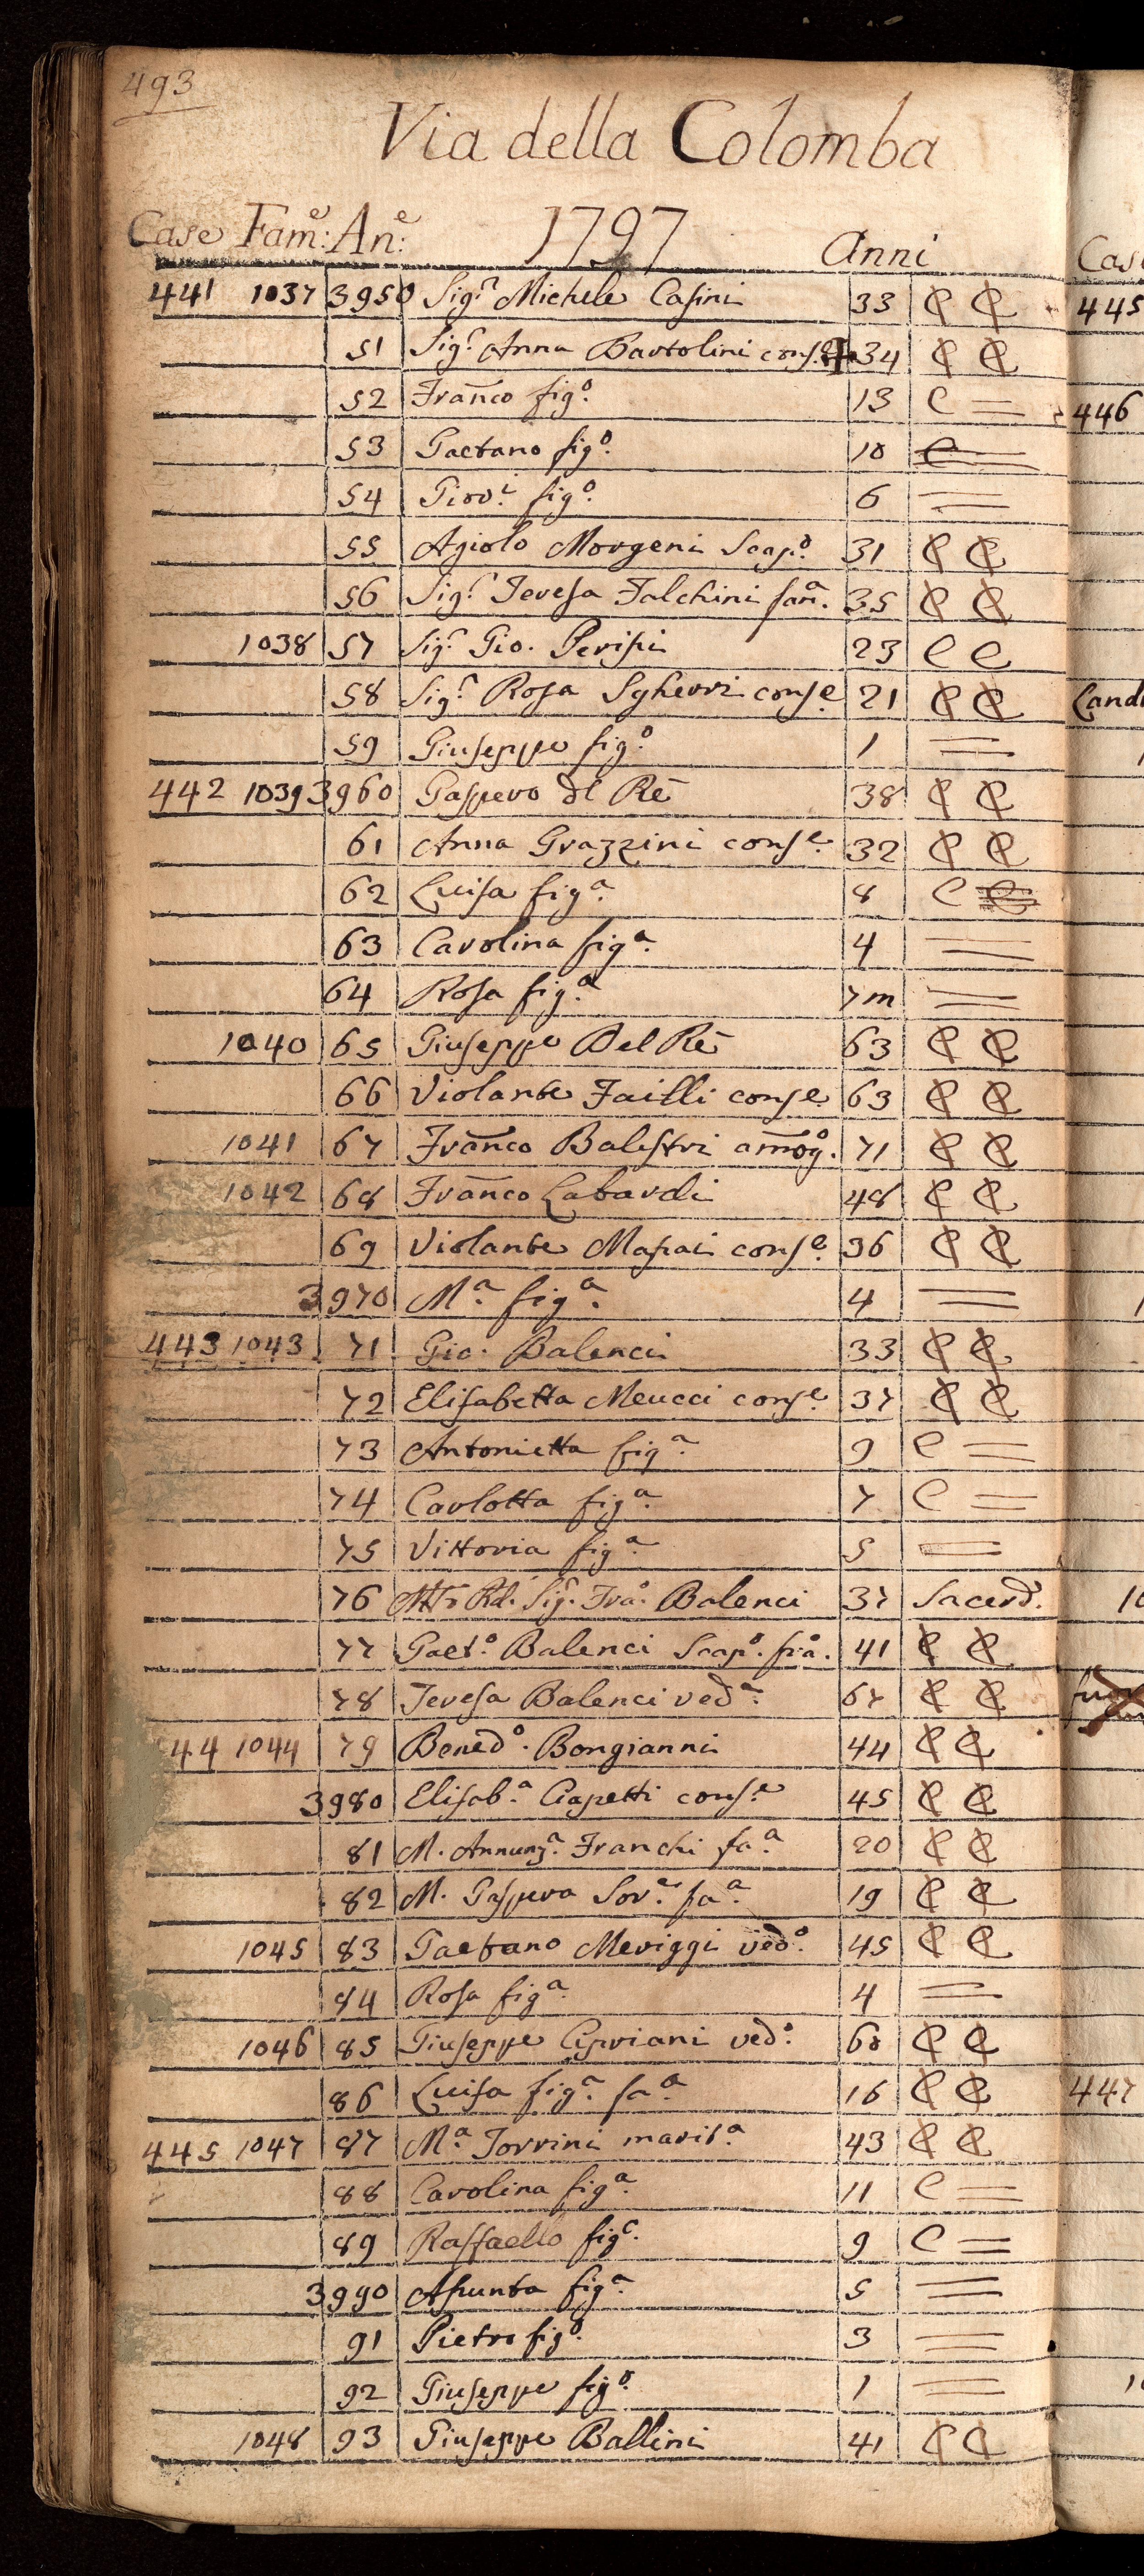 493
Via della Colomba
Case Fam:e An:e 1797 Anni
441 1037 3950 Sig.r Michele Casini 33 C C
51 Sig.r Anna Bartolini cons.e 34 C C
52 Franco fig.o 13 C =
53 Gaetano fig.o 10 C =
54 Giov.i fig.o 6 =
55 Agiolo Morgeni Scap.o 31 C C
56 Sig.r Teresa Falchini fan.a 35 C C
1038 57 Sig.r Gio. Perisii 23 C C
58 Sig.r Rosa Sgherri cons.e 21 C C
59 Giuseppe fig.o 1 =
442 1039 3960 Gaspero del Rè 38 C C
61 Anna Grazzini cons.e 32 C C
62 Luisa fig.a 8 C
63 Carolina fig.a 4 =
64 Rosa fig.a 7m =
1040 65 Giuseppe Del Rè 63 C C
66 Violante Failli cons.e 63 C C
1041 67 Franco Balestri amog.o 71 C C
1042 68 Franco Labardi 48 C C
69 Violante Masai cons.e 36 C C
3970 M.a fig.a 4 =
443 1043 71 Gio. Balenci 33 C C
72 Elisabetta Meucci cons.e 37 C C
73 Antonietta fig.a 9 C =
74 Carlotta fig.a 7 C =
75 Vittoria fig.a 5 =
76 Rd. Sig.r Fra.o Balenci 37 Sacerd.
77 Gaet.o Balenci Scap.o fra.o 41 C C
78 Teresa Balenci ved.a 67 C C
44 1044 79 Bened.o Bongianni 44 C C
3980 Elisab.a Ciapetti cons.e 45 C C
81 M. Annunz.a Franchi fa.a 20 C C
82 M. Gaspera Sor.e fa.a 19 C C
1045 83 Gaetano Meriggi ved.o 45 C C
84 Rosa fig.a 4 =
1046 85 Giuseppe Cipriani ved.o 60 C C
86 Luisa fig.a fa.a 16 C C
445 1047 87 M.a Torrini marit.a 43 C C
88 Carolina fig.a 11 C =
89 Raffaello fig.o 9 C =
3990 Asunta fig.a 5 =
91 Pietro fig.o 3 =
92 Giuseppe fig.o 1 =
1048 93 Giuseppe Ballini 41 C C
Cas
445
446
Land
447